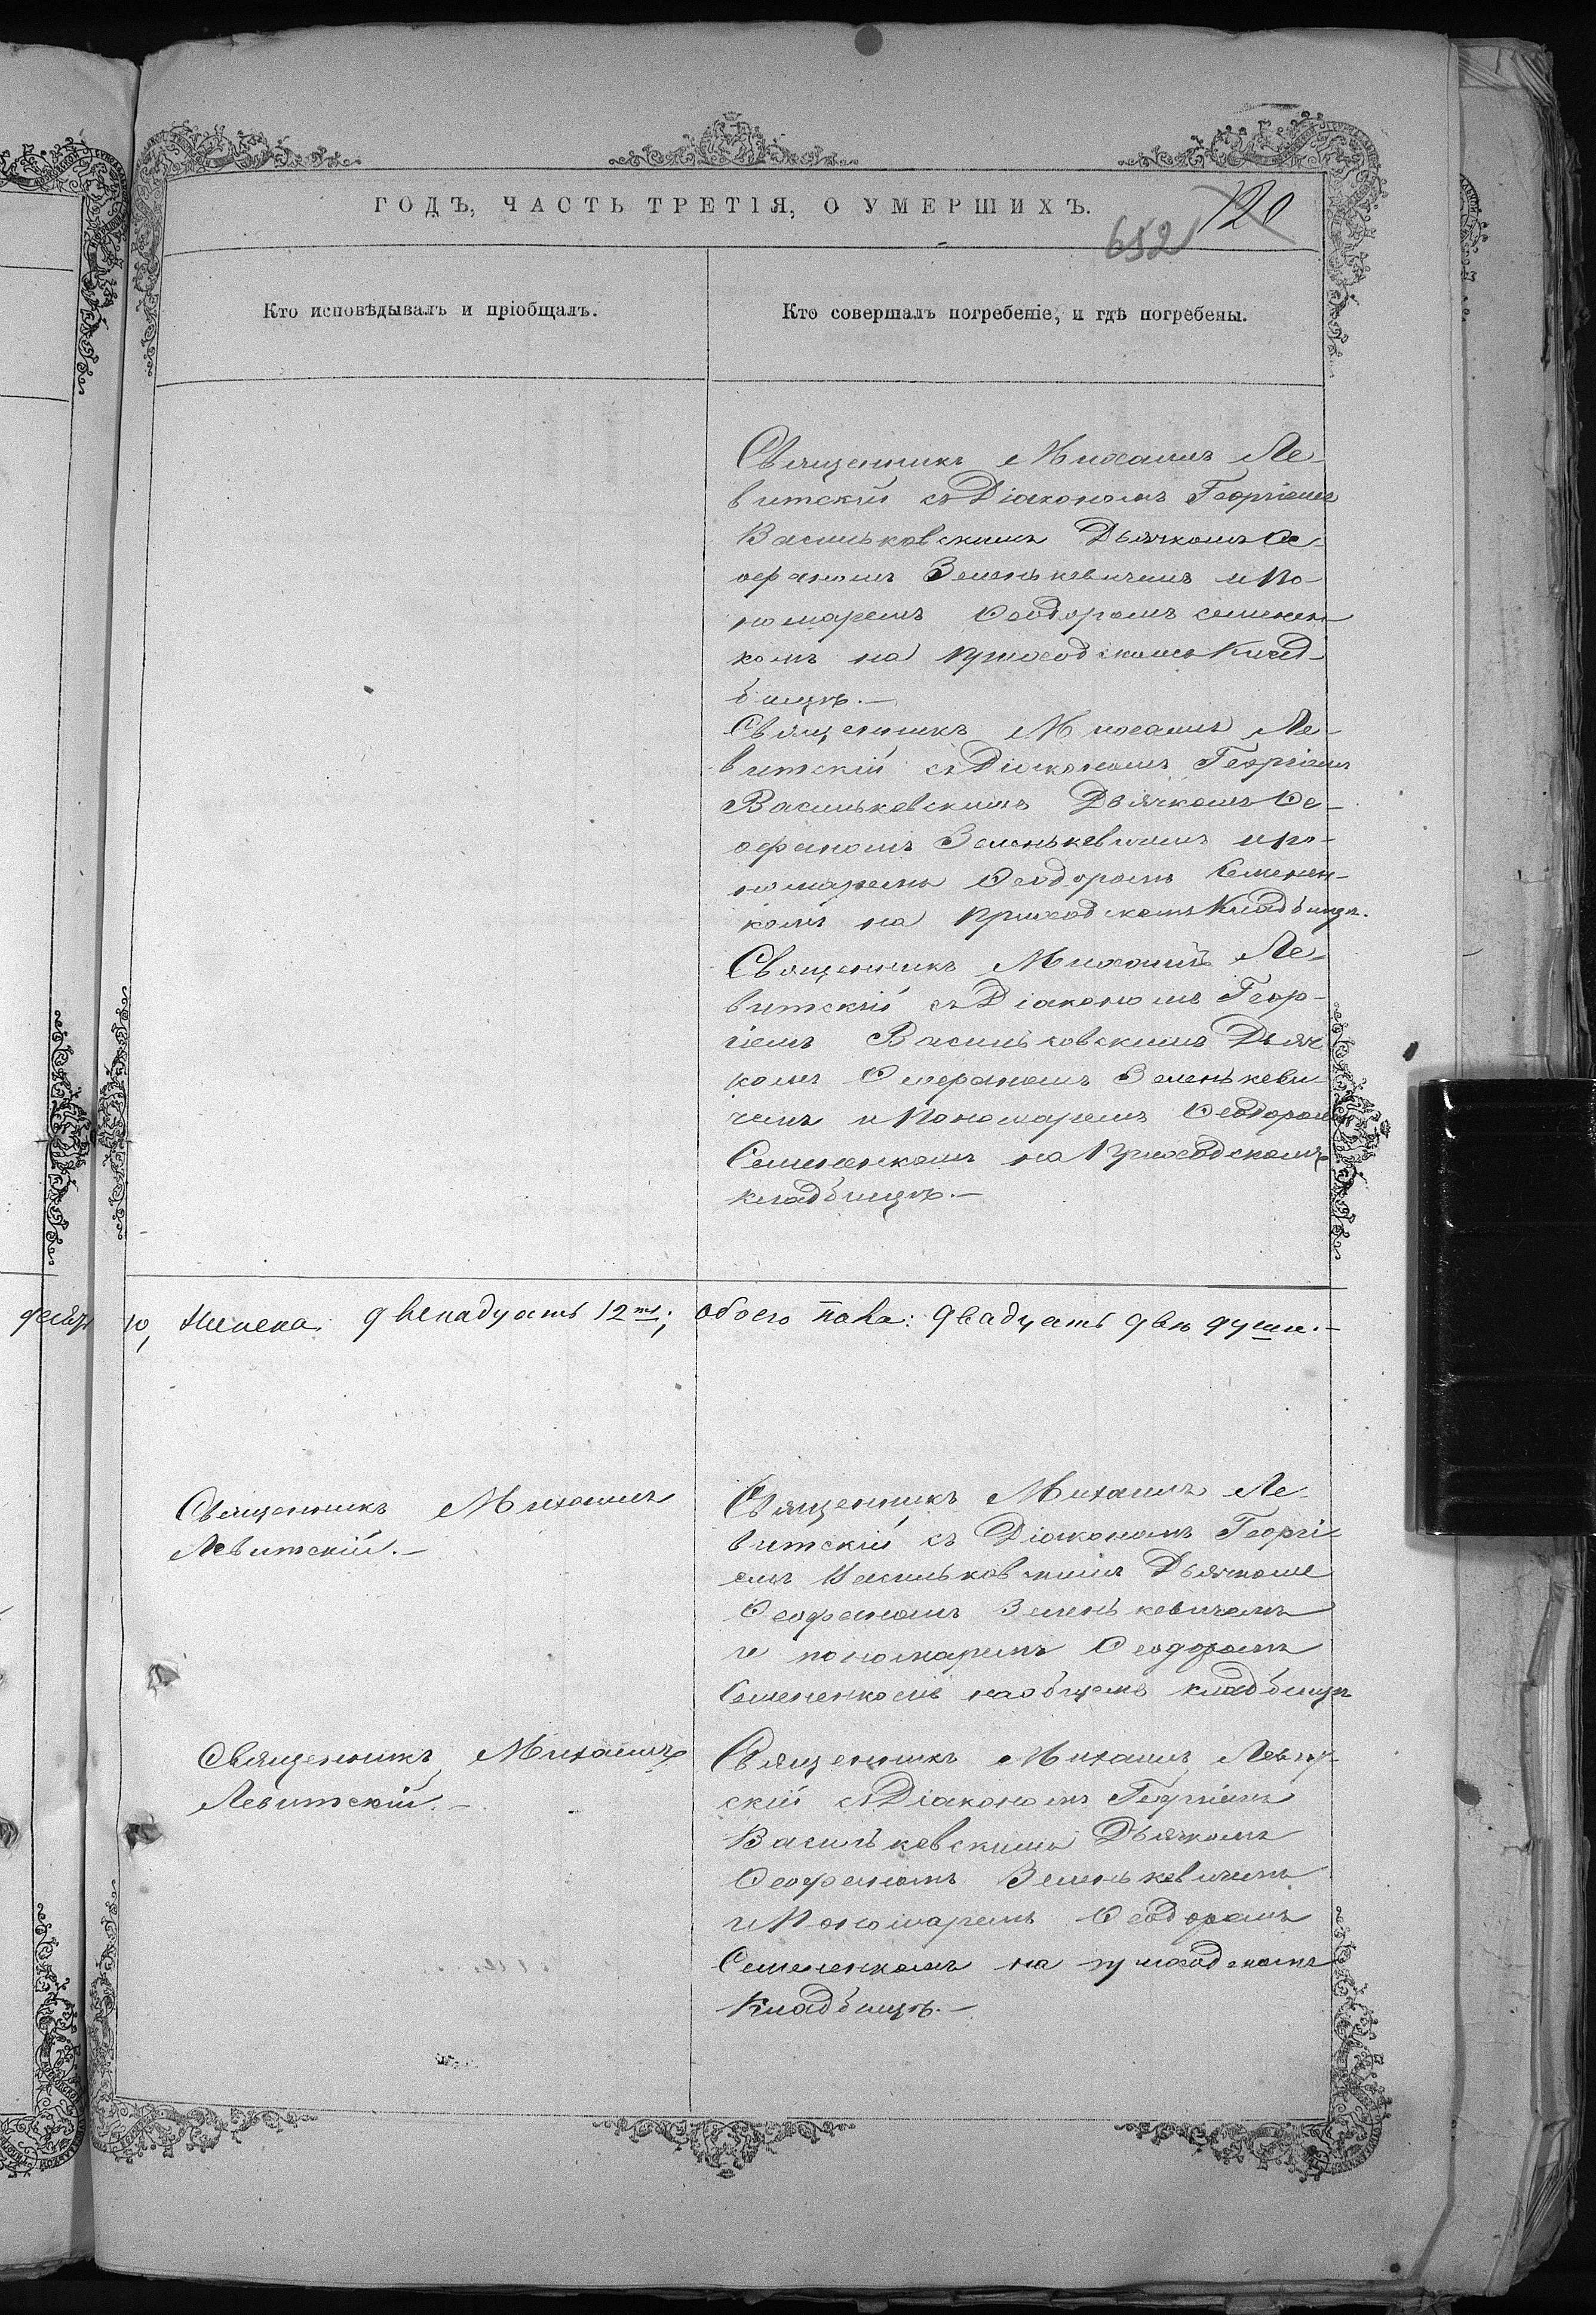 ГОДЪ, ЧАСТЬ ТРЕТІЯ, О УМЕРШИХЪ.
120
652
Кто исповѣдывалъ и пріобщалъ.
Кто совершалъ погребеніе, и гдѣ погребены.
Священникъ Михаилъ Ле-
витскій съ Діакономъ Георгіемъ
Васильковскимъ Дьячкомъ Ѳе-
офаномъ Зеленькевичемъ и По-
номаремъ Ѳеодоромъ Семенен-
комъ на Приходскомъ Клад-
бищѣ.—
Священникъ Михаилъ Ле-
витскій съ Діакономъ Георгіемъ
Васильковскимъ Дьячкомъ Ѳе-
офаномъ Зеленькевичемъ и По-
номаремъ Ѳеодоромъ Семенен-
комъ на Приходскомъ Кладбищѣ.
Священникъ Михаилъ Ле-
витскій съ Діакономъ Геор-
гіемъ Васильковскимъ Дьяч
комъ Ѳеофаномъ Зеленькеви
чемъ и Пономаремъ Ѳеодоромъ
Семененкомъ на Приходскомъ
кладбищѣ.—
10, женска двенадцать 12ть; обоего пола: двадцать двѣ души.—
Священникъ Михаилъ
Левитскій.—
Священникъ Михаилъ Ле-
витскій съ Діакономъ Георгі-
емъ Васильковскимъ Дьячкомъ
Ѳеофаномъ Зеленькевичемъ
и пономаремъ Ѳеодоромъ
Семененкомъ на общемъ кладбищѣ
Священникъ Михаилъ
Левитскій.—
Священникъ Михаилъ Левит-
скій съ Діакономъ Георгіемъ
Васильковскимъ Дьячкомъ
Ѳеофаномъ Зеленькевичемъ
и Пономаремъ Ѳеодоромъ
Семененкомъ на приходскомъ
Кладбищѣ.—